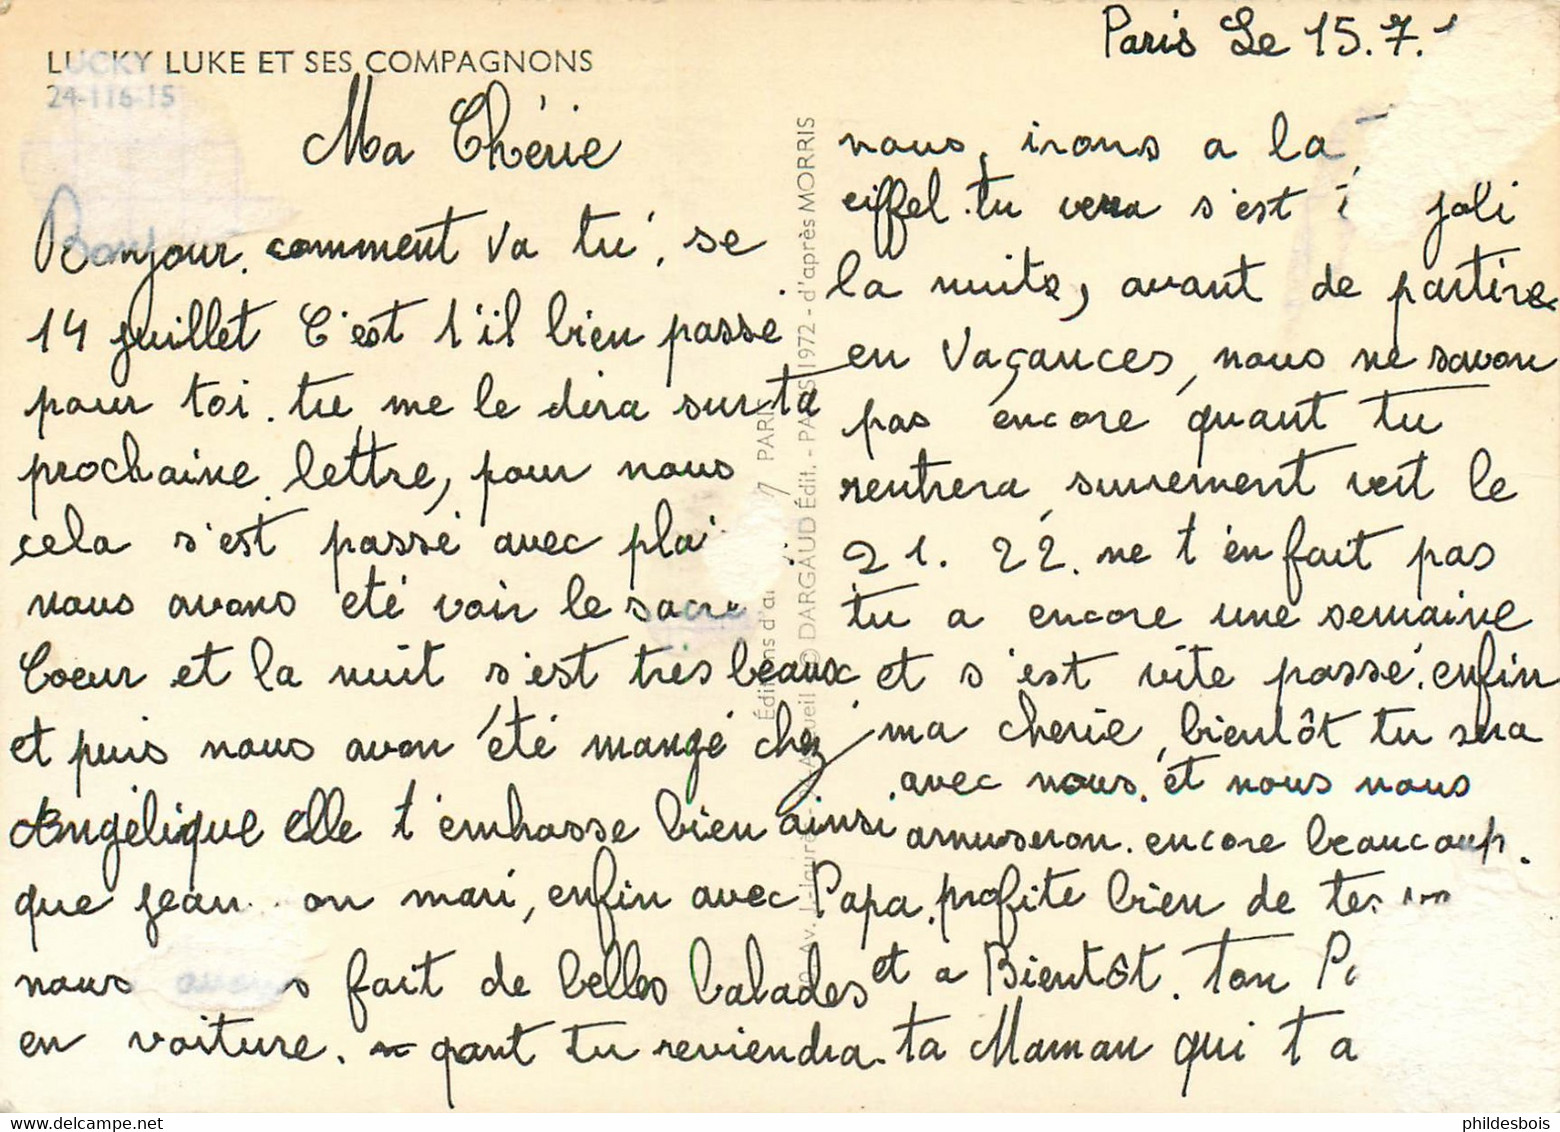 LUCKY LUKE ET SES COMPAGNONS
24-116-15
Ma Chérie
Bonjour. comment va tu, se
14 juillet C'est t'il bien passe
pour toi. tu me le dira sur ta
prochaine lettre, pour nous
cela s'est passé avec
nous avons été voir le sacre
Coeur et la nuit s'est très beaux
et puis nous avon été mangé chez
Angélique elle t'embrasse bien ainsi
que jean on mari, enfin avec Papa
nous avons fait de belles balades
en voiture. qant tu reviendra
Paris Le 15.7.
nous, irons a la
eiffel. tu verra s'est joli
la nuits, avant de partire
en Vaçances, nous ne savon
pas encore quant tu
rentrera, surement vert le
21. 22. ne t'en fait pas
tu a encore une semaine
et s'est vite passé. enfin
ma cherie, bientôt tu sera
avec nous. et nous nous
amuseron. encore beaucoup.
profite bien de tes
et a Bientôt. ton
ta Maman qui t a
Éditions d'a PARIS
Av. J.-Jaurès - © DARGAUD Édit. - PARIS 1972 - d'après MORRIS
phildesbois